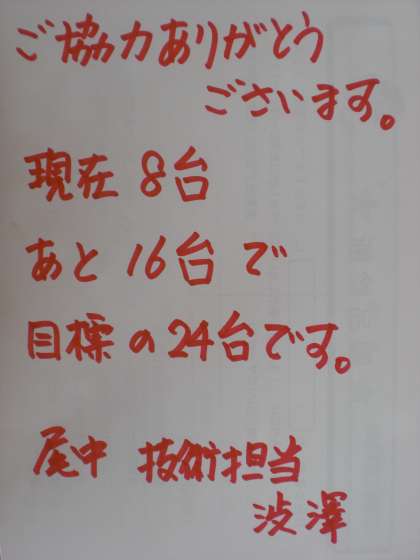 ご協力ありがとう
ございます。
現在 8台
あと 16台で
目標の24台です。
尾中 技術担当
渋澤